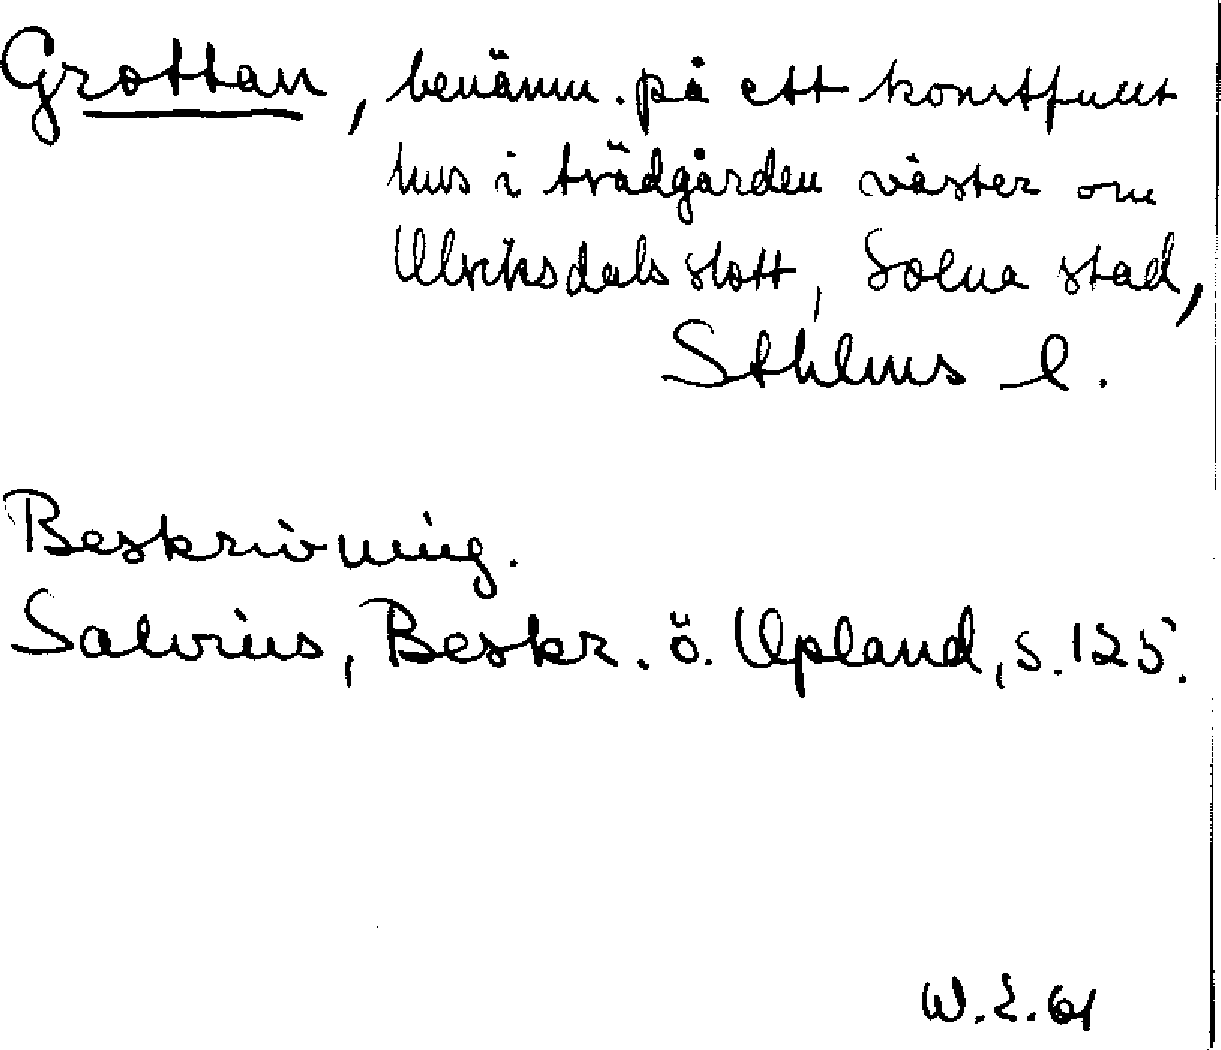 Grottan, benämn. på ett konstfullt
hus i trädgården väster om
Ulriksdals slott, Solna stad,
Sthlms l.
Beskrivning.
Salvius, Beskr. ö. Upland, s. 125.
W. E. 61